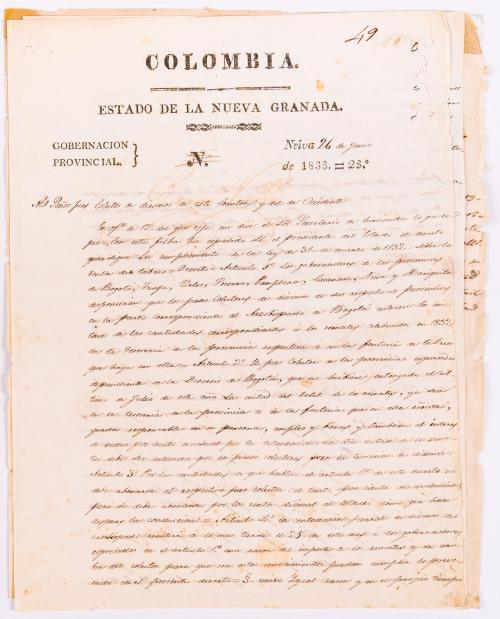 49
COLOMBIA.
ESTADO DE LA NUEVA GRANADA.
GOBERNACION
PROVINCIAL. }
N.
Neiva 26 de Junio
de 1833. = 23.º
Al Señor Juez Colector de diezmos de este
En of.º de 12 del que rije me dice el Sor Secretario de hacienda lo que co
pio = Con esta fecha ha expedido el presidente del Estado el decreto
que sigue = En cumplimiento de la ley de 31 de marzo de 1832 sobre la
renta de tabaco = Decreto = Articulo 1º Los gobernadores de las provincias
de Bogotá, Tunja, Velez, Socorro, Pamplona, Casanare, Neiva y Mariquita
dispondrán que los jueces colectores de diezmos de sus respectivas provincias
en la parte correspondiente al Arzobispado de Bogotá enteren la mi
tad de las cantidades correspondientes á los remates celebrados en 1832
en la Tesoreria de la provincia respectiva ó en las factorias de tabacos
que haya en ella = Articulo 2º Los jueces colectores de las provincias espresadas
dependientes de la Diocesis de Bogotá, que no hubieren entregado el ul
timo de Julio de este año la mitad del total de los remates, ya sea
en la tesoreria de la provincia ó en la factoria que en ella exista,
quedan responsables con su persona, empleo y bienes y tambien al interes
de por ciento mensual por la retardacion. La otra mitad de la
debe ser enterada por los jueces colectores en la tesoreria de diezmos =
Articulo 3º Por las cantidades de que habla el articulo 1º de este decreto no
debe abonarse al respectivo juez colector el tanto por ciento de conduccion,
pero se debe abonar por la renta decimal al estado como que hace
despues la conduccion = Articulo 4º La contaduria general de diezmos del
arzobispado remitirá á lo mas tarde el 25 de este mes á los gobernadores
espresados en el articulo 1º una razon del importe de los remates y de
del colector para que con estos conocimientos puedan cumplir lo preve
nido en el presente decreto = 5. igual razon y en el propio tiempo